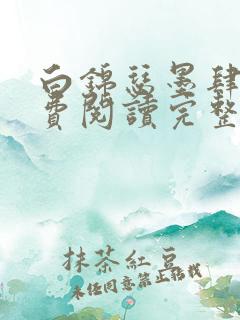 白錦瑟墨肆
費閱讀完整
抹茶紅豆
未任同意禁止轉載